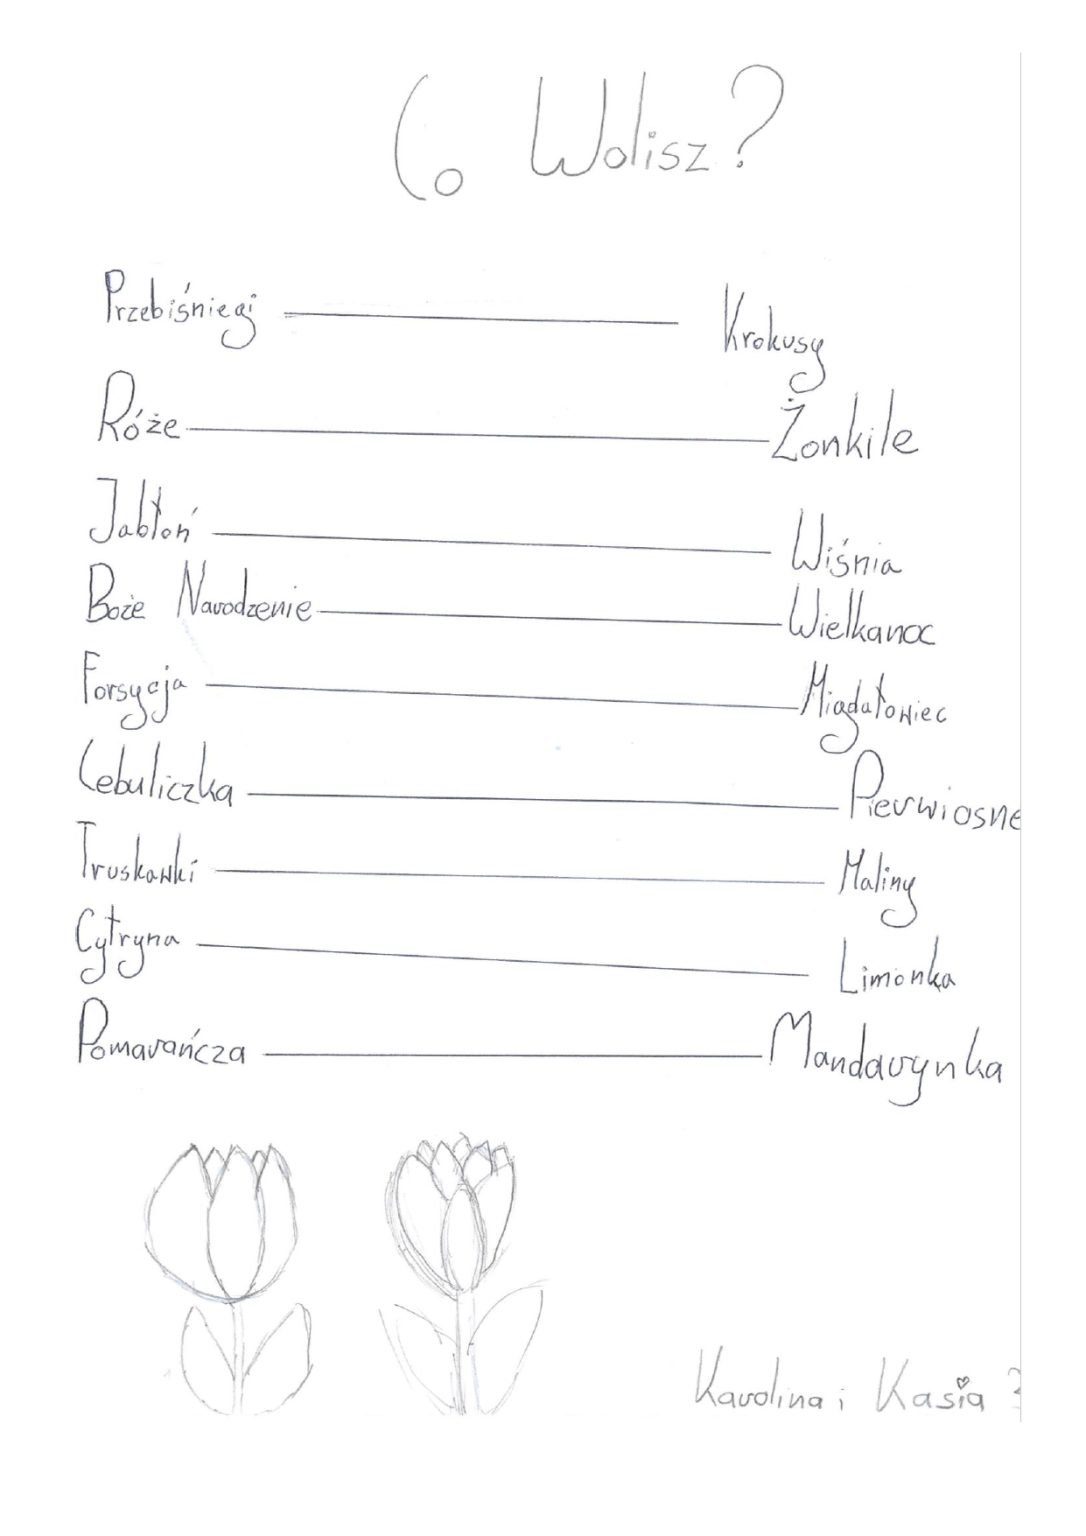 Co Wolisz?
Przebiśniegi Krokusy
Róże Żonkile
Jabłoń Wiśnia
Boże Narodzenie Wielkanoc
Forsycja Migdałowiec
Cebuliczka Pierwiosne
Truskawki Maliny
Cytryna Limonka
Pomarańcza Mandarynka
Karolina i Kasia